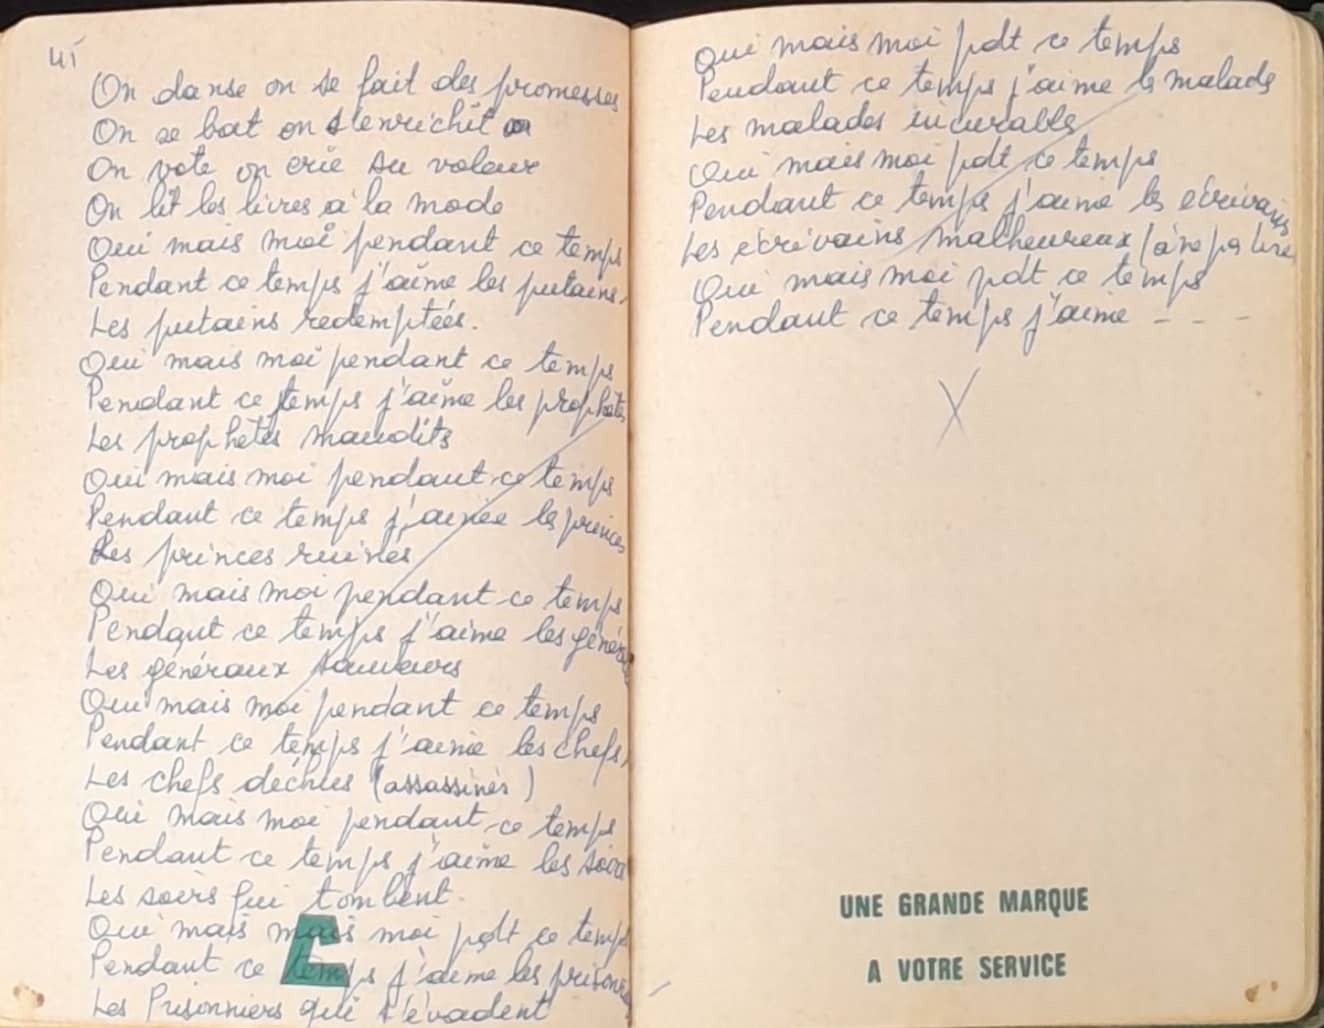 45
On danse on se fait des promesses
On se bat on s'enrichit on
On vote on crie au voleur
On lit les livres à la mode
Oui mais moi pendant ce temps
Pendant ce temps j'aime les putains
Les putains redemptées.
Oui mais moi pendant ce temps
Pendant ce temps j'aime les prophètes
Les prophètes maudits
Oui mais moi pendant ce temps
Pendant ce temps j'aime les princes
Les princes ruinés
Oui mais moi pendant ce temps
Pendant ce temps j'aime les
Les généraux
Oui mais moi pendant ce temps
Pendant ce temps j'aime les chefs
Les chefs déchus (assassinés)
Oui mais moi pendant ce temps
Pendant ce temps j'aime les soirs
Les soirs qui tombent.
Oui mais mais moi pdt ce temps
Pendant ce temps j'aime les
Les Prisonniers qui s'évadent
Oui mais moi pdt ce temps
Pendant ce temps j'aime ls malads
Les malades incurables
Oui mais moi pdt ce temps
Pendant ce temps j'aime ls écrivains
Les écrivains malheureux (à ne pas lire
Oui mais moi pdt ce temps
Pendant ce temps j'aime - - -
X
UNE GRANDE MARQUE
A VOTRE SERVICE